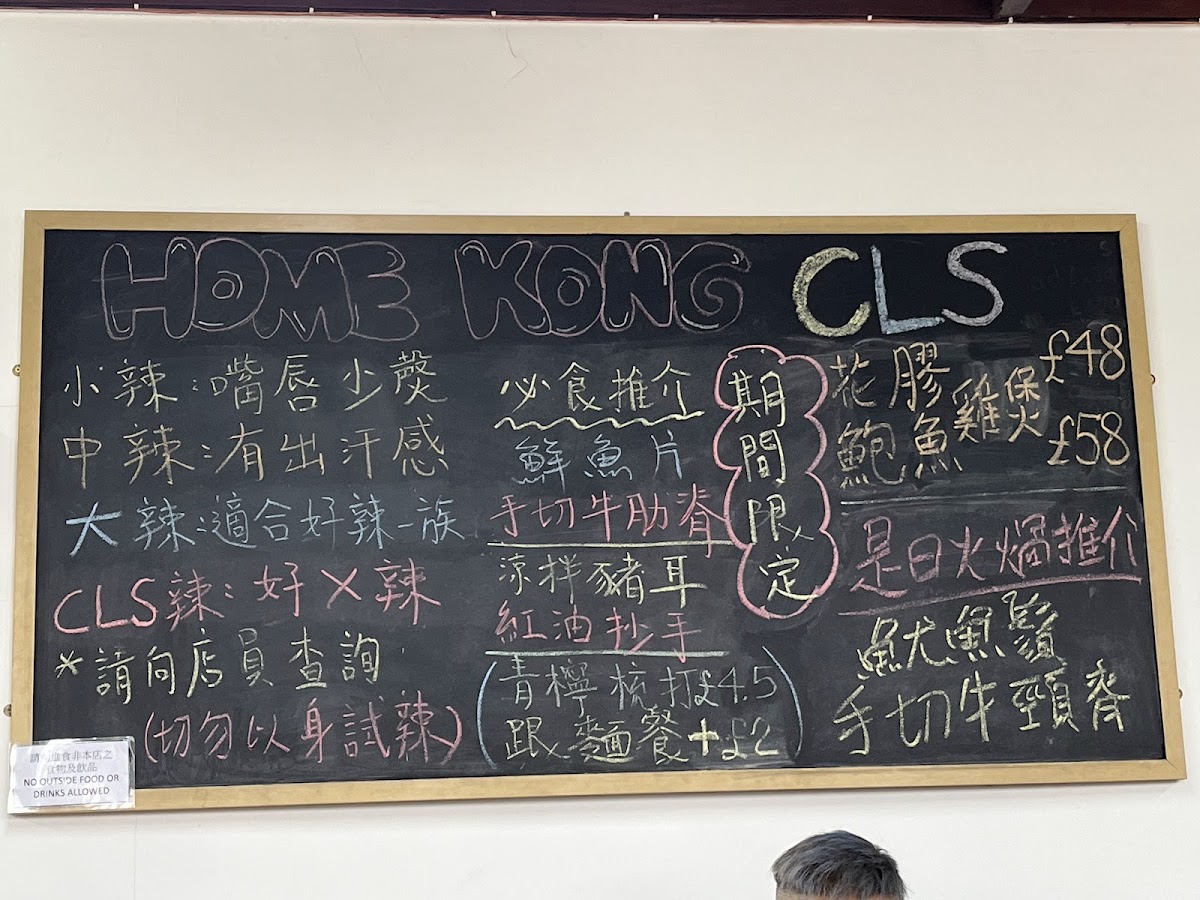 HOME KONG CLS
小辣:嘴唇少㷫
中辣:有出汗感
大辣:適合好辣一族
CLS辣:好X辣
*請向店員查詢
(切勿以身試辣)
必食推介
鮮魚片
手切牛肋脊
涼拌豬耳
紅油抄手
(青檸梳打£4.5
跟麵餐+£2)
期間限定
花膠 £48
鮑魚 £58
雞煲
是日火焗推介
魷魚鬚
手切牛頸脊
請勿進食非本店之
食物及飲品
NO OUTSIDE FOOD OR
DRINKS ALLOWED